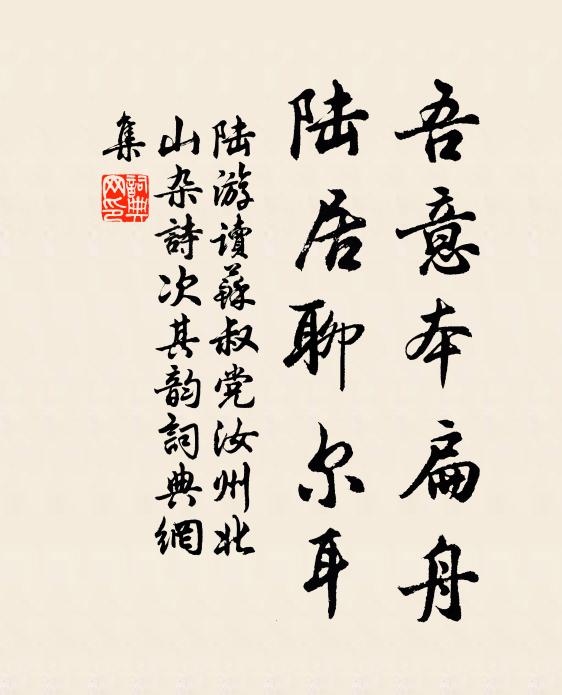 吾意本扁舟
陆居聊尔耳
陆游读蘇叔党汝州北
山杂詩次其韵詞典網
集
詞典
网印